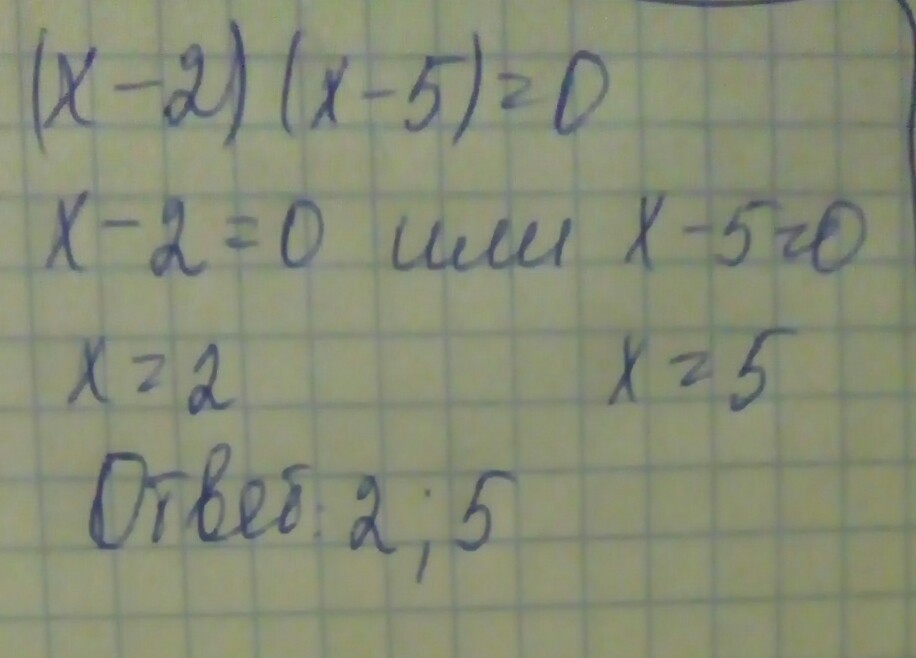 (x-2)(x-5)=0
x-2=0 или x-5=0
x=2 x=5
Ответ: 2; 5